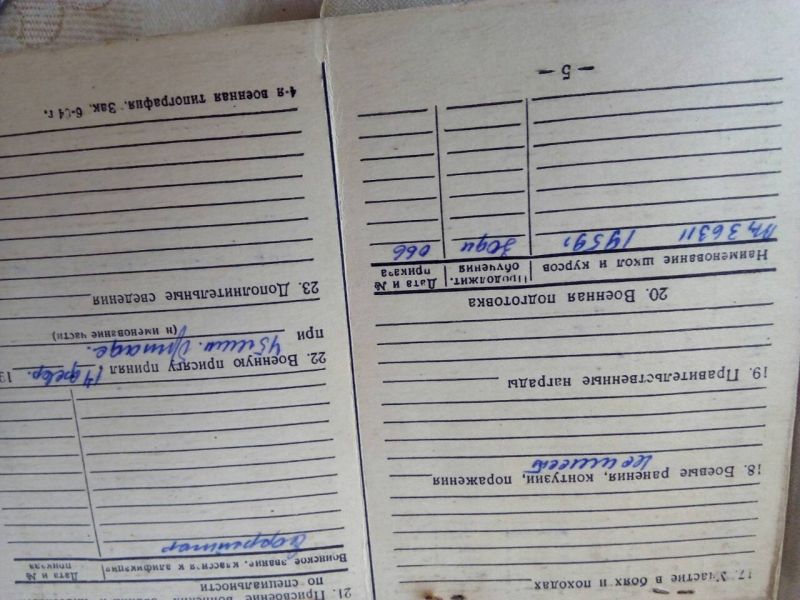 17. Участие в боях и походах
18. Боевые ранения, контузии, поражения
не имеет
19. Правительственные награды
20. Военная подготовка
Наименование школ и курсов Продолжит. обучения Дата и № приказа
36311 1959г
— 5 —
21. Присвоение
по специальности
Воинское звание, Дата и № приказа
Ефрейтор
22. Военную присягу принял 14 февр. 19
при 45 инж. бригаде.
(наименование части)
23. Дополнительные сведения
4-я военная типография. Зак. 6-04 г.